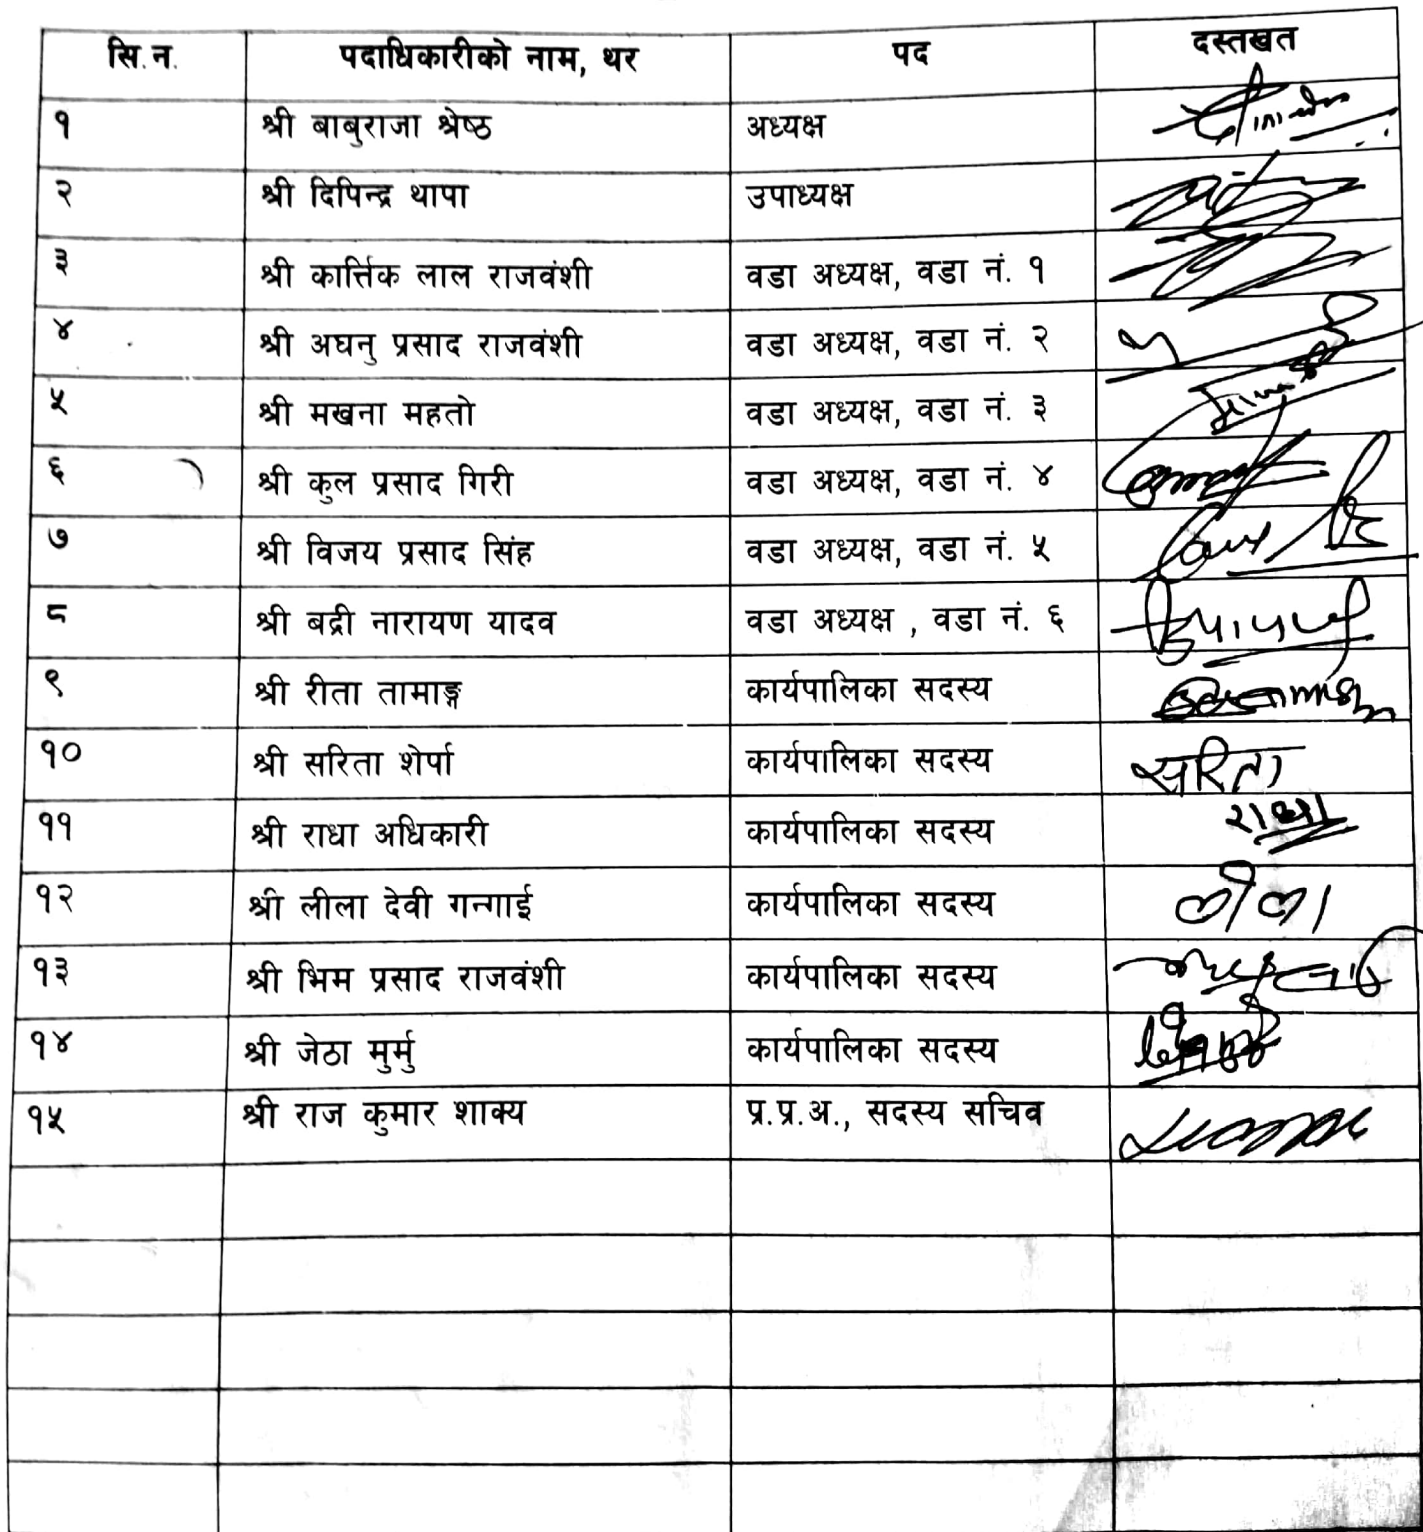 सि.न. पदाधिकारीको नाम, थर पद दस्तखत
१ श्री बाबुराजा श्रेष्ठ अध्यक्ष
२ श्री दिपिन्द्र थापा उपाध्यक्ष
३ श्री कार्त्तिक लाल राजवंशी वडा अध्यक्ष, वडा नं. १
४ श्री अघनु प्रसाद राजवंशी वडा अध्यक्ष, वडा नं. २
५ श्री मखना महतो वडा अध्यक्ष, वडा नं. ३
६ श्री कुल प्रसाद गिरी वडा अध्यक्ष, वडा नं. ४
७ श्री विजय प्रसाद सिंह वडा अध्यक्ष, वडा नं. ५
८ श्री बद्री नारायण यादव वडा अध्यक्ष , वडा नं. ६
९ श्री रीता तामाङ्ग कार्यपालिका सदस्य
१० श्री सरिता शेर्पा कार्यपालिका सदस्य सरिता
११ श्री राधा अधिकारी कार्यपालिका सदस्य राधा
१२ श्री लीला देवी गन्गाई कार्यपालिका सदस्य लीला
१३ श्री भिम प्रसाद राजवंशी कार्यपालिका सदस्य
१४ श्री जेठा मुर्मु कार्यपालिका सदस्य
१५ श्री राज कुमार शाक्य प्र.प्र.अ., सदस्य सचिव